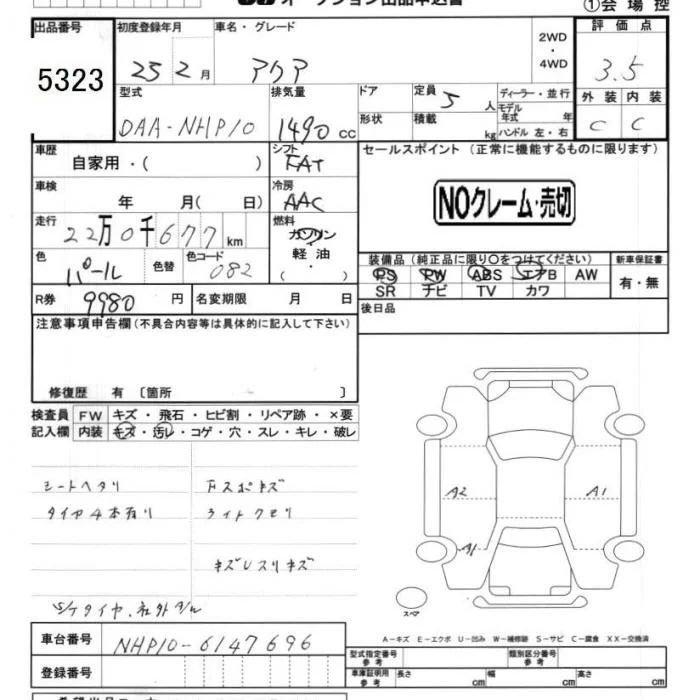 オークション出品申込書
①会場控
出品番号 初度登録年月 車名・グレード 2WD・4WD 評価点
5323 25 2月 アクア 3.5
型式 排気量 ドア 定員 5人 ディーラー・並行 外装 内装
モデル年式 年
DAA-NHP10 1490cc 形状 積載 kg ハンドル 左・右 C C
車歴 シフト セールスポイント(正常に機能するものに限ります)
自家用・( ) FAT
車検 冷房
年 月( 日) AAC NOクレーム・売切
走行 燃料
22万0千677km ガソリン
軽油
・
( )
色 色替 色コード 装備品(純正品に限り○をつけてください) 新車保証書
パール 082 PS PW ABS エアB AW 有・無
SR ナビ TV カワ
R券 9980円 名変期限 月 日 後日品
注意事項申告欄(不具合内容等は具体的に記入して下さい)
修復歴 有〔箇所 〕
検査員 FW キズ・飛石・ヒビ割・リペア跡・×要
記入欄 内装 キズ・汚レ・コゲ・穴・スレ・キレ・破レ
シートヘタリ 下スポキズ
タイヤ4本有り ライトクモリ
キズUスリキズ
S/Tタイヤ、社外
A2 A1
A1
スペア
A-キズ E-エクボ U-凹み W-補修跡 S-サビ C-腐食 XX-交換済
車台番号 NHP10-6147696
型式指定番号 参考 類別区分番号 参考
登録番号 車庫証明用 参考 長さ cm 幅 cm 高さ cm